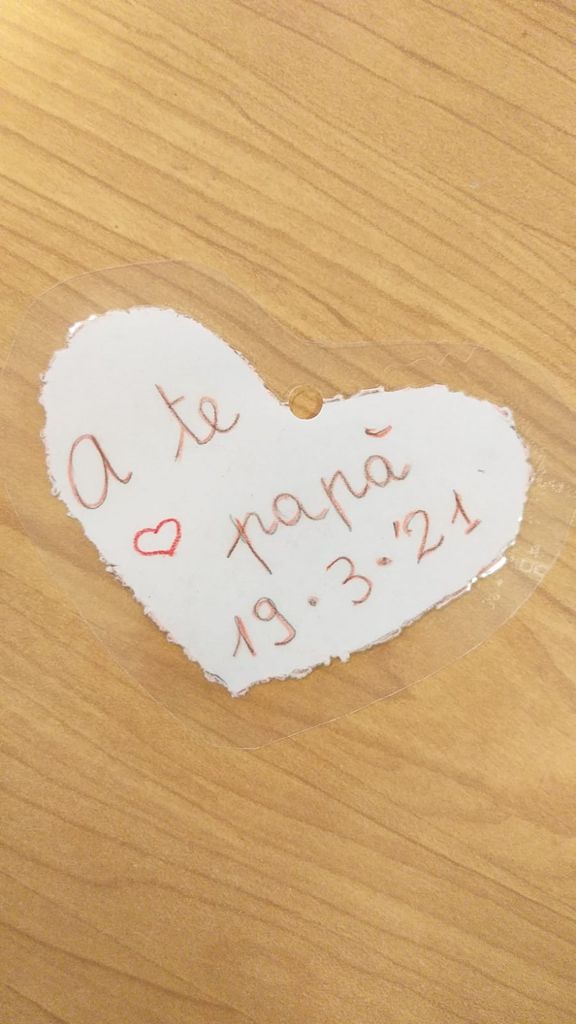 A te
papà
19.3.'21